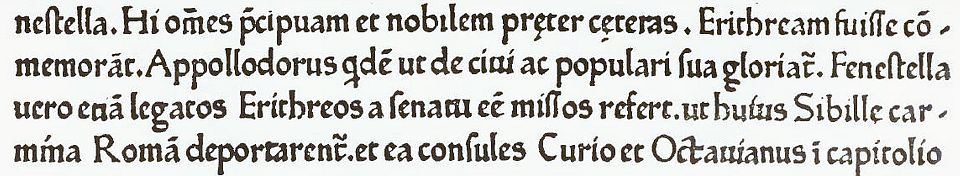 neſtella. Hi om̃es p̃cipuam et nobilem pręter cęteras . Erithream fuiſſe cō-
memorāt. Appollodorus qdē ut de ciui ac populari ſua gloriat̃. Feneſtella
uero etiā legatos Erithreos a ſenatu eē miſſos refert. ut huius Sibillę car-
mina Romā deportarent̃. et ea conſules Curio et Octauianus ī capitolio